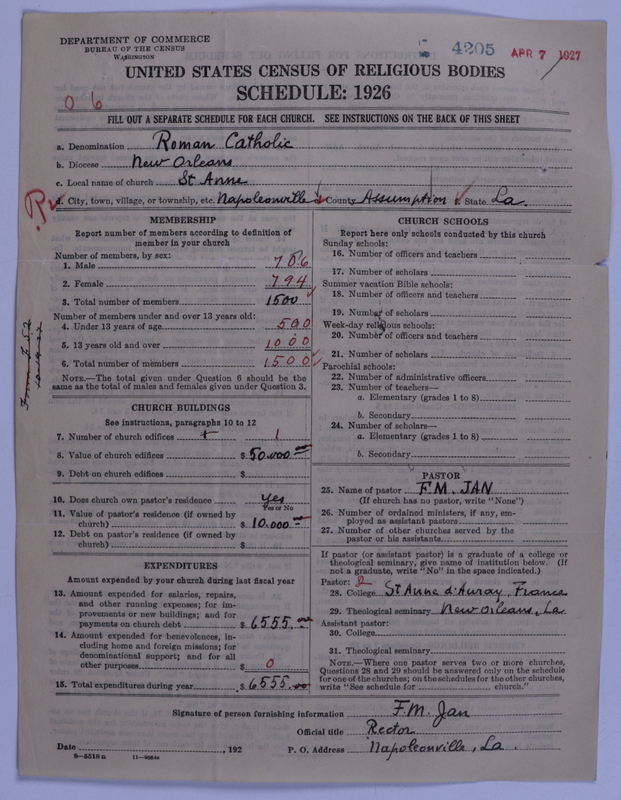 DEPARTMENT OF COMMERCE
BUREAU OF THE CENSUS
WASHINGTON
4205
APR 7 1927
UNITED STATES CENSUS OF RELIGIOUS BODIES
SCHEDULE: 1926
0 6
FILL OUT A SEPARATE SCHEDULE FOR EACH CHURCH. SEE INSTRUCTIONS ON THE BACK OF THIS SHEET
a. Denomination Roman Catholic
b. Diocese New Orleans
c. Local name of church St Anne
d. City, town, village, or township, etc. Napoleonville County Assumption State La.
MEMBERSHIP
Report number of members according to definition of
member in your church
Number of members, by sex:
1. Male 706
2. Female 794
3. Total number of members 1500
Number of members under and over 13 years old:
4. Under 13 years of age 500
5. 13 years old and over 1000
6. Total number of members 1500
NOTE.—The total given under Question 6 should be the
same as the total of males and females given under Question 3.
CHURCH BUILDINGS
See instructions, paragraphs 10 to 12
7. Number of church edifices 1
8. Value of church edifices $ 50.000.00
9. Debt on church edifices $
10. Does church own pastor's residence yes
Yes or No
11. Value of pastor's residence (if owned by
church) $ 10.000.
12. Debt on pastor's residence (if owned by
church) $
EXPENDITURES
Amount expended by your church during last fiscal year
13. Amount expended for salaries, repairs,
and other running expenses; for im-
provements or new buildings; and for
payments on church debt $ 6555.00
14. Amount expended for benevolences, in-
cluding home and foreign missions; for
denominational support; and for all
other purposes $ 0
15. Total expenditures during year $ 6555.00
CHURCH SCHOOLS
Report here only schools conducted by this church
Sunday schools:
16. Number of officers and teachers
17. Number of scholars
Summer vacation Bible schools:
18. Number of officers and teachers
19. Number of scholars
Week-day religious schools:
20. Number of officers and teachers
21. Number of scholars
Parochial schools:
22. Number of administrative officers
23. Number of teachers—
a. Elementary (grades 1 to 8)
b. Secondary
24. Number of scholars—
a. Elementary (grades 1 to 8)
b. Secondary
PASTOR
25. Name of pastor F.M. JAN
(If church has no pastor, write "None")
26. Number of ordained ministers, if any, em-
ployed as assistant pastors
27. Number of other churches served by the
pastor or his assistants
If pastor (or assistant pastor) is a graduate of a college or
theological seminary, give name of institution below. (If
not a graduate, write "No" in the space indicated.)
Pastor: 2
28. College St Anne d'Auray, France
29. Theological seminary New Orleans, La
Assistant pastor:
30. College
31. Theological seminary
NOTE.—Where one pastor serves two or more churches,
Questions 28 and 29 should be answered only on the schedule
for one of the churches; on the schedules for the other churches,
write "See schedule for church."
Signature of person furnishing information F.M. Jan
Official title Rector
Date , 192 P. O. Address Napoleonville, La.
8—5518a 11—9664a